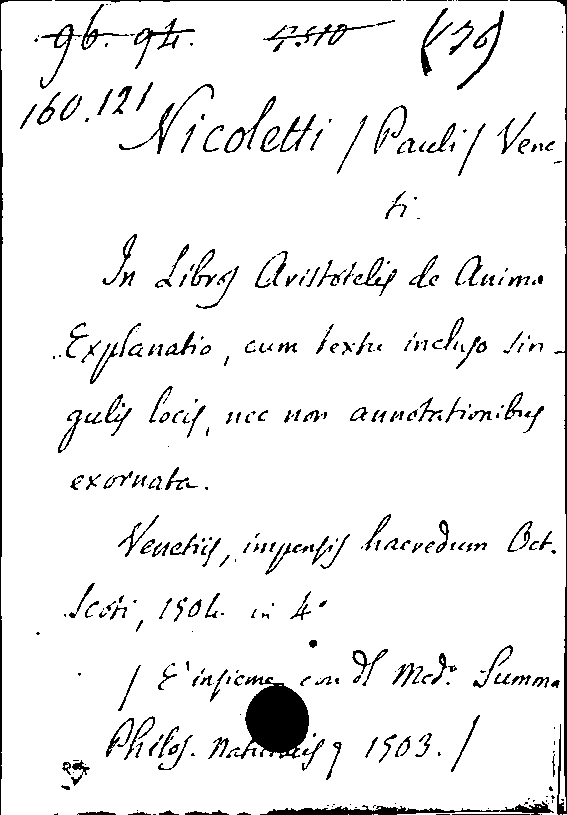 96. 94. 4.510 (436)
160.121
Nicoletti / Pauli / Vene-
ti.
In Libros Aristotelis de Anima
Explanatio, cum textu incluso sin-
gulis locis, nec non annotationibus
exornata.
Venetiis, impensis haeredum Oct.
Scoti, 1504. in 4°
/ E' insieme con dl Med.º Summa
Philos. Naturalis, 1503. /